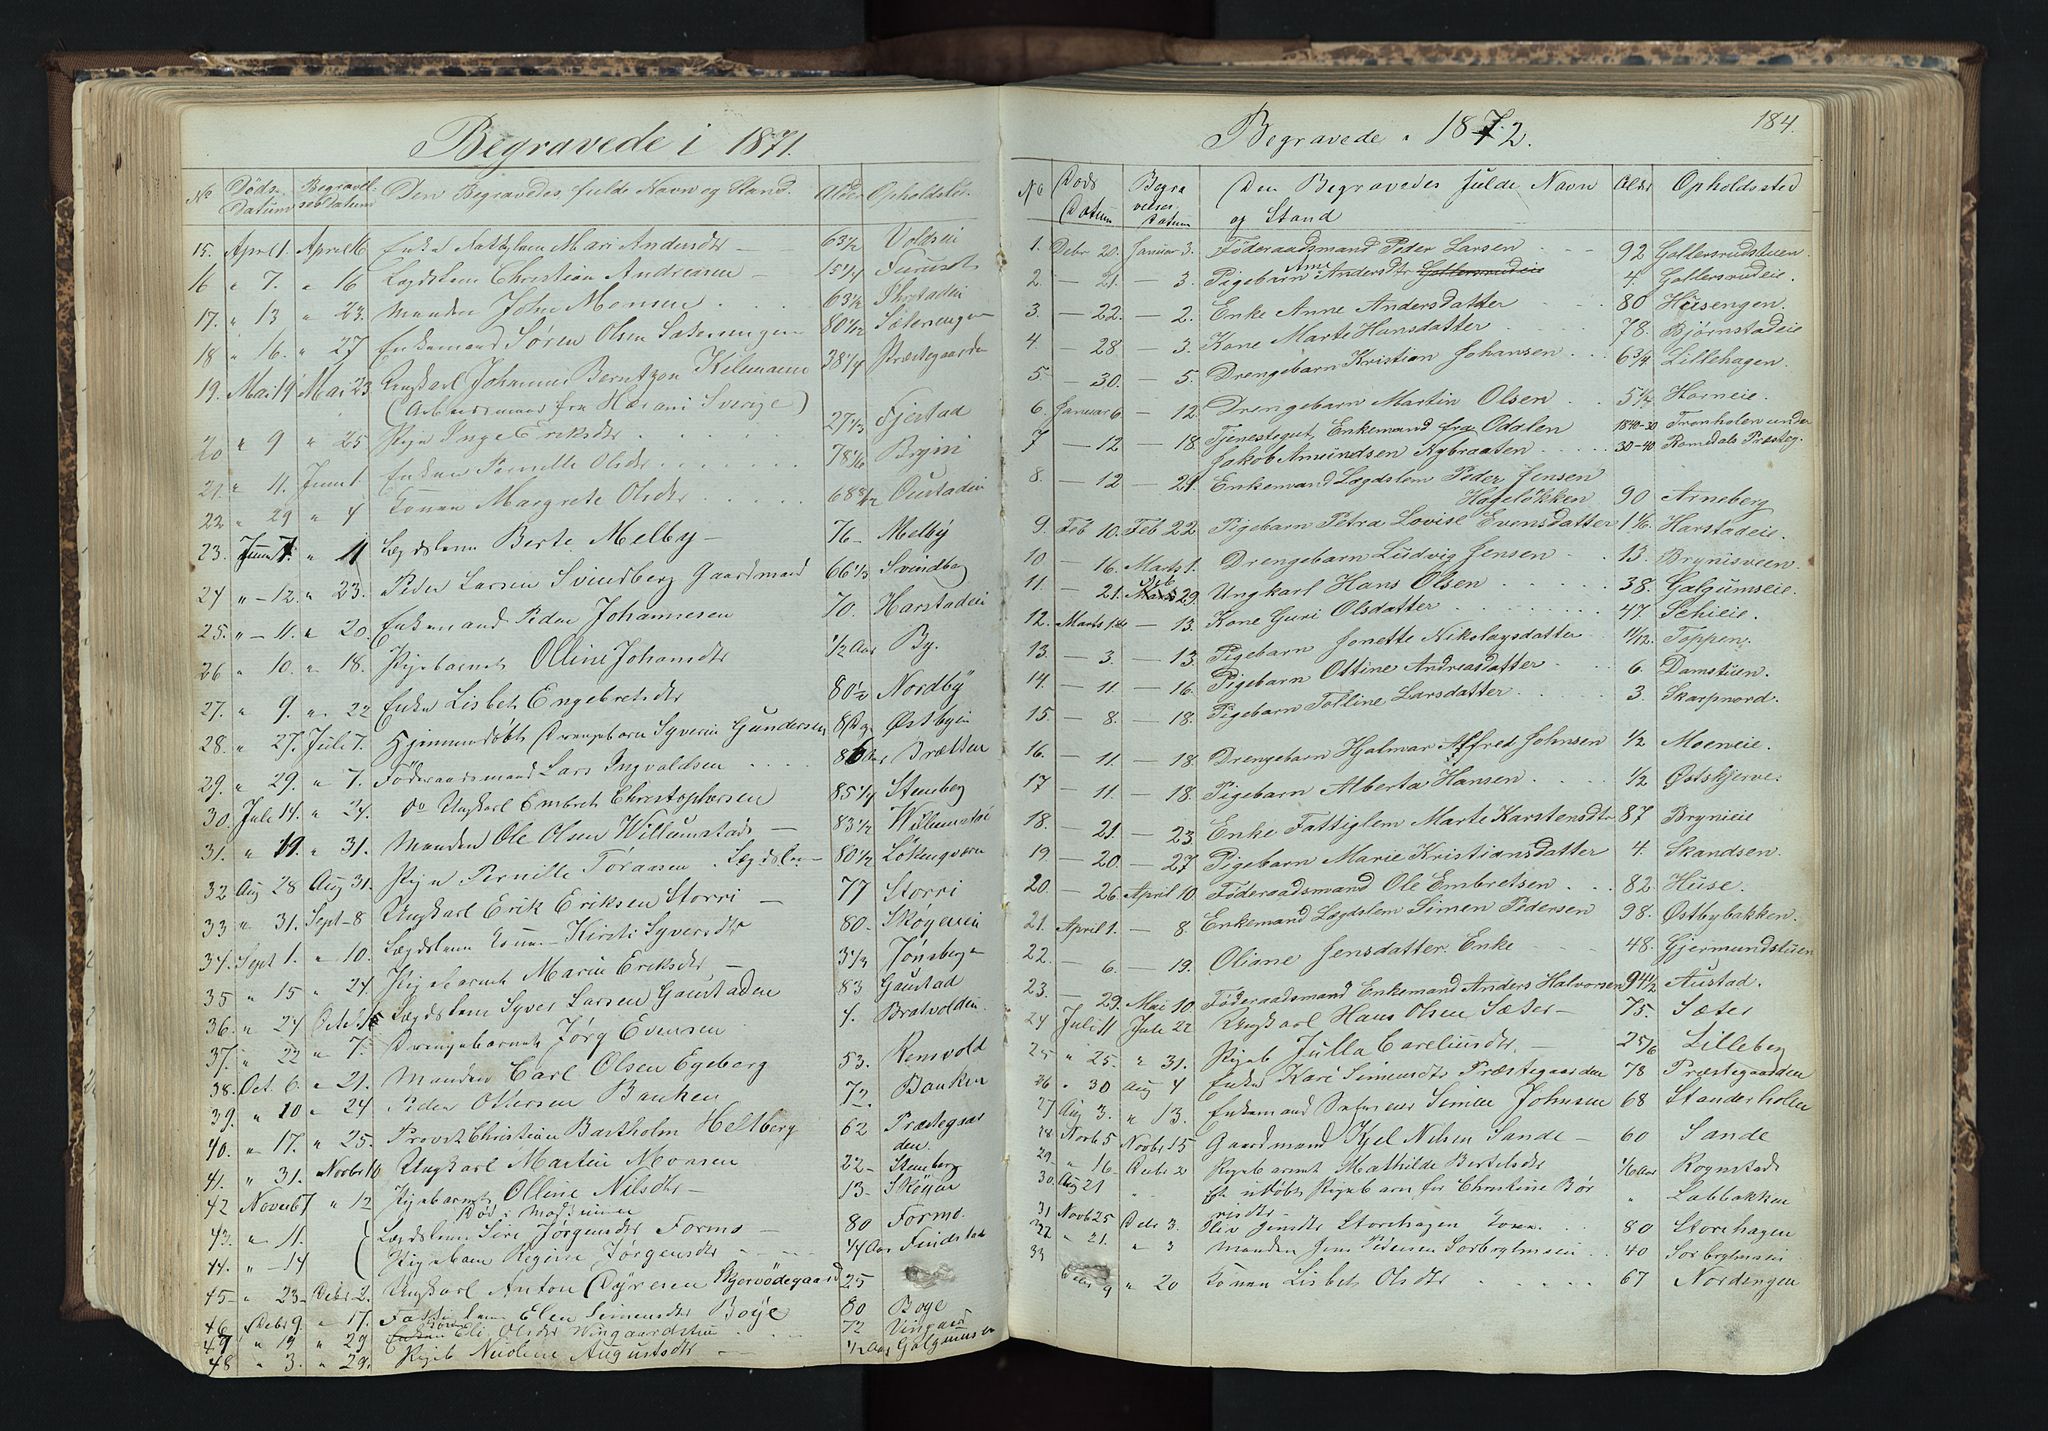 Begravede i 1871.
No Døds Datum Begravelsesdatum Den Begravedes fulde Navn og Stand. Alder Opholdsted
15. April 1. April 16 Enke Mari Andersdr 63½ Voldeie
16 " 7. " 16 Lægdslem Christian Andreasen 15¼
17. " 13 " 23. Manden John Monsen 63½
18 " 16. " 27 Enkemand Søren Olsen Sætereengen 80 1/12 Sætereengen
19. Mai 14 Mai 23 Ungkarl Johannes Berntzon Kilemann 38¼ Præstegaarden
(Arbeidsmand fra i Sverige)
20 " 9 " 25 Pige Inge Eriksdr 27⅓ Fjestad
21 " 11. Juni 1 Enken Pernille Olsdr 78 1/6 Bryni
22 " 29 " 4 Konen Margrete Olsdr Oustadeie
23. Juni 7. " 11 Lægdslem Berte Melby 76 Melby
24 " 12. " 23. Peder Larsen Svindberg Gaardmand 66⅓ Svindberg
25. " 11. " 20. Enkemand Peder Johannesen 70. Harstadeie
26 " 10. " 18. Pigebarnet Olline Johansdr ½ Aar By.
27. " 9. " 22 Enke Lisbet Engebretsdr 80½ Nordby
28. " 27. Juli 7. Hjemmedøbt Drengebarn Syverin Gundersen 8 Dge Østbyeie
29. " 29. " 7. Føderaadsmand Lars Ingvaldsen 86 Aar Brætten
30. Juli 14. " 24. do Ungkarl Embret Christophersen 85¼ Steneberg
31. " 19. " 31. Manden Ole Olsen Willumstad 83½ Willumstad
32 Aug 28 Aug 31. Pige Pernille Toraasen Lægdslem 80½
33 " 31. Sept 8 Ungkarl Erik Eriksen Storri 77 Storri
34. Sept 1. " 10. Lægdslem Konen Kirsti Syversdr 80. Skøyeneie
35 " 15 " 24 Pigebarnet Marie Eriksdr 3⅓ Jønsberg
36. " 24 Octob Lægdslem Syver Larsen Gaustaden 83 Gaustad
37. " 22 " 7. Drengebarnet Jørg Evensen 4. Bratvolden
38. Oct. 6. " 21. Manden Carl Olsen Egeberg 53. Remvold
39. " 10 " 24 Peder Ottersen Banken 72. Banken
40. " 17. " 25. Provst Christian Bartholm Heltberg 62 Præstegaarden.
41. " 31. Novbr 10 Ungkarl Martin Monsen 22 Steneberg
42 Novebr 7 " 12 Pigebarnet Olline Nilsdr 13. Skøyen
43. " 11. Lægdslem Siri Jørgensdr Formo 80 Formo.
44. " 14 Pigebarn Regine Jørgensdr ¼ Aar Findstad
45 " 23 Debr 2. Ungkarl Anton Dyresen Skjervødegaard 25
46 Debr 9 " 17. Fattiglem Elen Simensdr Boye 80 Boye
47 " 19 " 29 Enken Konen Eli Olsdr Wingaardstuen 72 Vingaard
48 " 3. " 29. Pigeb Nicoline Augustsdr ½ Aar Galgumseie
Begravede i 1872.
184.
No Døds Datum Begravelses Datum Den Begravedes fulde Navn og Stand Alder Opholdssted
1. Debr 20. Januar 3. Føderaadsmand Peder Larsen 92 Gallersrudstuen
2. — 21. — 3. Pigebarn Anne Andersdtr Gallersrudeie 4. Gallersrudeie.
3. — 22. — 2. Enke Anne Andersdatter 80 Husengen.
4. — 28 — 3. Kone Marte Hansdatter 78. Bjørnstadeie
5. — 30. — 5. Drengebarn Kristian Johansen 6¾ Lillehagen.
6. Januar 6 — 12. Drengebarn Martin Olsen 5½ Horneie.
7 — 12 — 18. Tjenestegut, Enkemand fra Odalen 1840-30 Tronholen under
Jakob Amundsen Nybraaten 30-40 Romedals Præsteg.
8. — 12 — 21. Enkemand Lægdslem Peder Jensen
Hageløkken 90 Arneberg
9. Feb 10. Feb 22. Pigebarn Petra Lovise Evensdatter 1⅙ Harstadeie.
10 — 16. Marts 1. Drengebarn Ludvig Jensen 13. Brynisveen.
11. — 21. Feb Marts 29. Ungkarl Hans Olsen 38. Galgumseie.
12. Marts 1 — 13. Kone Guri Olsdatter 47. Sehieie.
13. — 3. — 13. Pigebarn Jonette Nikolaysdatter 4/12. Toppen.
14. — 11. — 16. Pigebarn Ottine Andreasdatter 6 Damstuen.
15. — 8. — 18. Pigebarn Tolline Larsdatter 3. Skarpnord.
16. — 11. — 18. Drengebarn Hjalmar Alfred Johnsen ½ Moeneie.
17 — 11. — 18. Pigebarn Alberta Hansen ½ Østskjerve.
18. — 21. — 23. Enke Fattiglem Marte Karstensdtr 87 Brynieie
19. — 20. — 27 Pigebarn Marie Kristiansdatter 4. Skandsen.
20. — 26. April 10. Føderaadsmand Ole Embretsen 82. Huse.
21. April 1. — 8. Enkemand Lægdslem Simen Pedersen 98. Østbybakken.
22. — 6. — 19. Oliane Jensdatter. Enke 48. Gjermundstuen
23. — 29. Mai 10. Føderaadsmand Enkemand Anders Halvorsen 94½ Austad.
24 Juli 11 Jule 22 Ungkarl Hans Olsen Sæter 75. Sæter
25 " 25. " 31. Pigeb Julla Careliusdr 2 5/6 Lilleberg
26 " 30 Aug 4 Enke Kari Simensdtr Præstegaarden 78 Præstegaarden
27 Aug 3. " 13. Enkemand Simen Johnsen 68 Standerholen
28 Novb 5 Novbr 15 Gaardmand Kjel Nilsen Sande 60 Sande
29. " 16 Debr 2 Pigebarnet Mathilde Bertelsdr 1/6 Aar Rognstad
30. Aug 21 " Et udøbt Pigebarn for Christine Bør " Labbakken
resdtr
31 Novb 25 Debr 3. Oliv Jensdtr Storehagen Konen 80 Storehagen
32 " 21. " 3 Manden Jens Pedersen Sorbyhmsen 40
33 Debr 9 " 20 Konen Lisbet Olsdtr 67 Nordengen